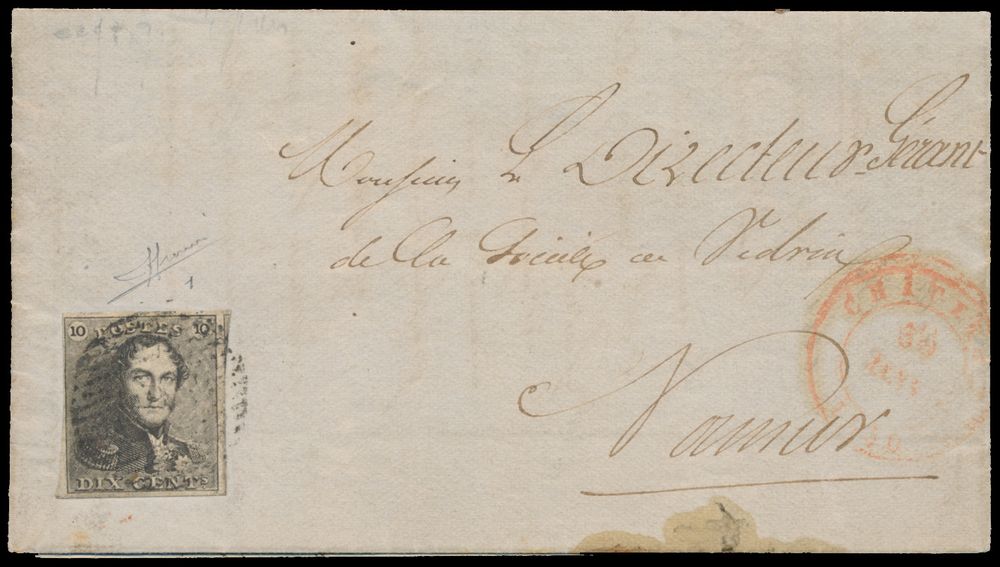 Monsieur Le Directeur Gérant
de la Société de Vedrin
Namur
10 POSTES 10
DIX CENTS
1